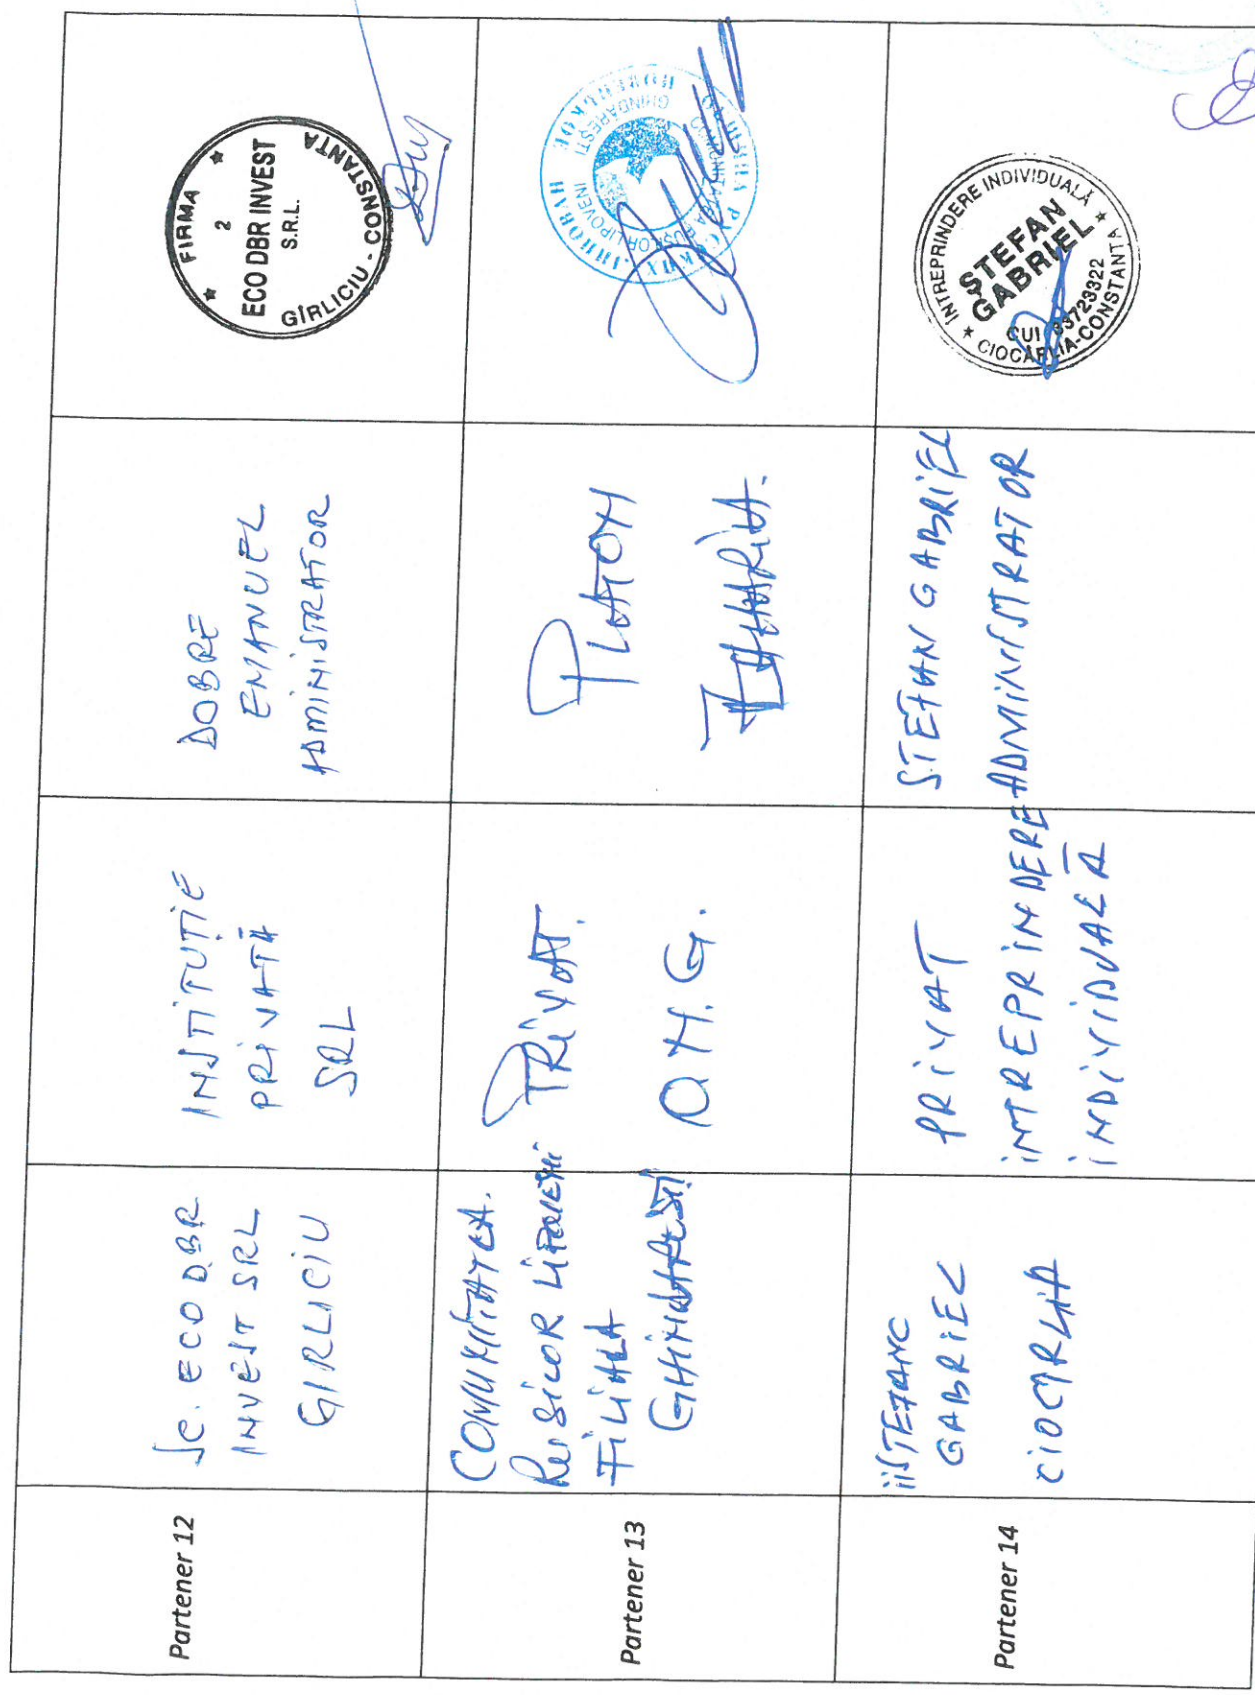 Partener 12
SC. ECO DBR
INVEST SRL
GIRLICIU
INSTITUȚIE
PRIVATĂ
SRL
DOBRE
EMANUEL
ADMINISTRATOR
★ FIRMA ★
2
ECO DBR INVEST
S.R.L.
GÎRLICIU - CONSTANTA
Partener 13
COMUNITATEA.
RUSILOR LIPOVENI
FILIALA
GHINDARESTI
PRIVAT.
O.N.G.
PLATON
COMUNITATEA RUSILOR LIPOVENI
GHINDARESTI
Partener 14
II STEFAN
GABRIEL
CIOCARLIA
PRIVAT
INTREPRINDERE
INDIVIDUALĂ
STEFAN GABRIEL
ADMINISTRATOR
★ INTREPRINDERE INDIVIDUALĂ ★
ȘTEFAN
GABRIEL
CUI 33723322
CIOCÂRLIA-CONSTANTA